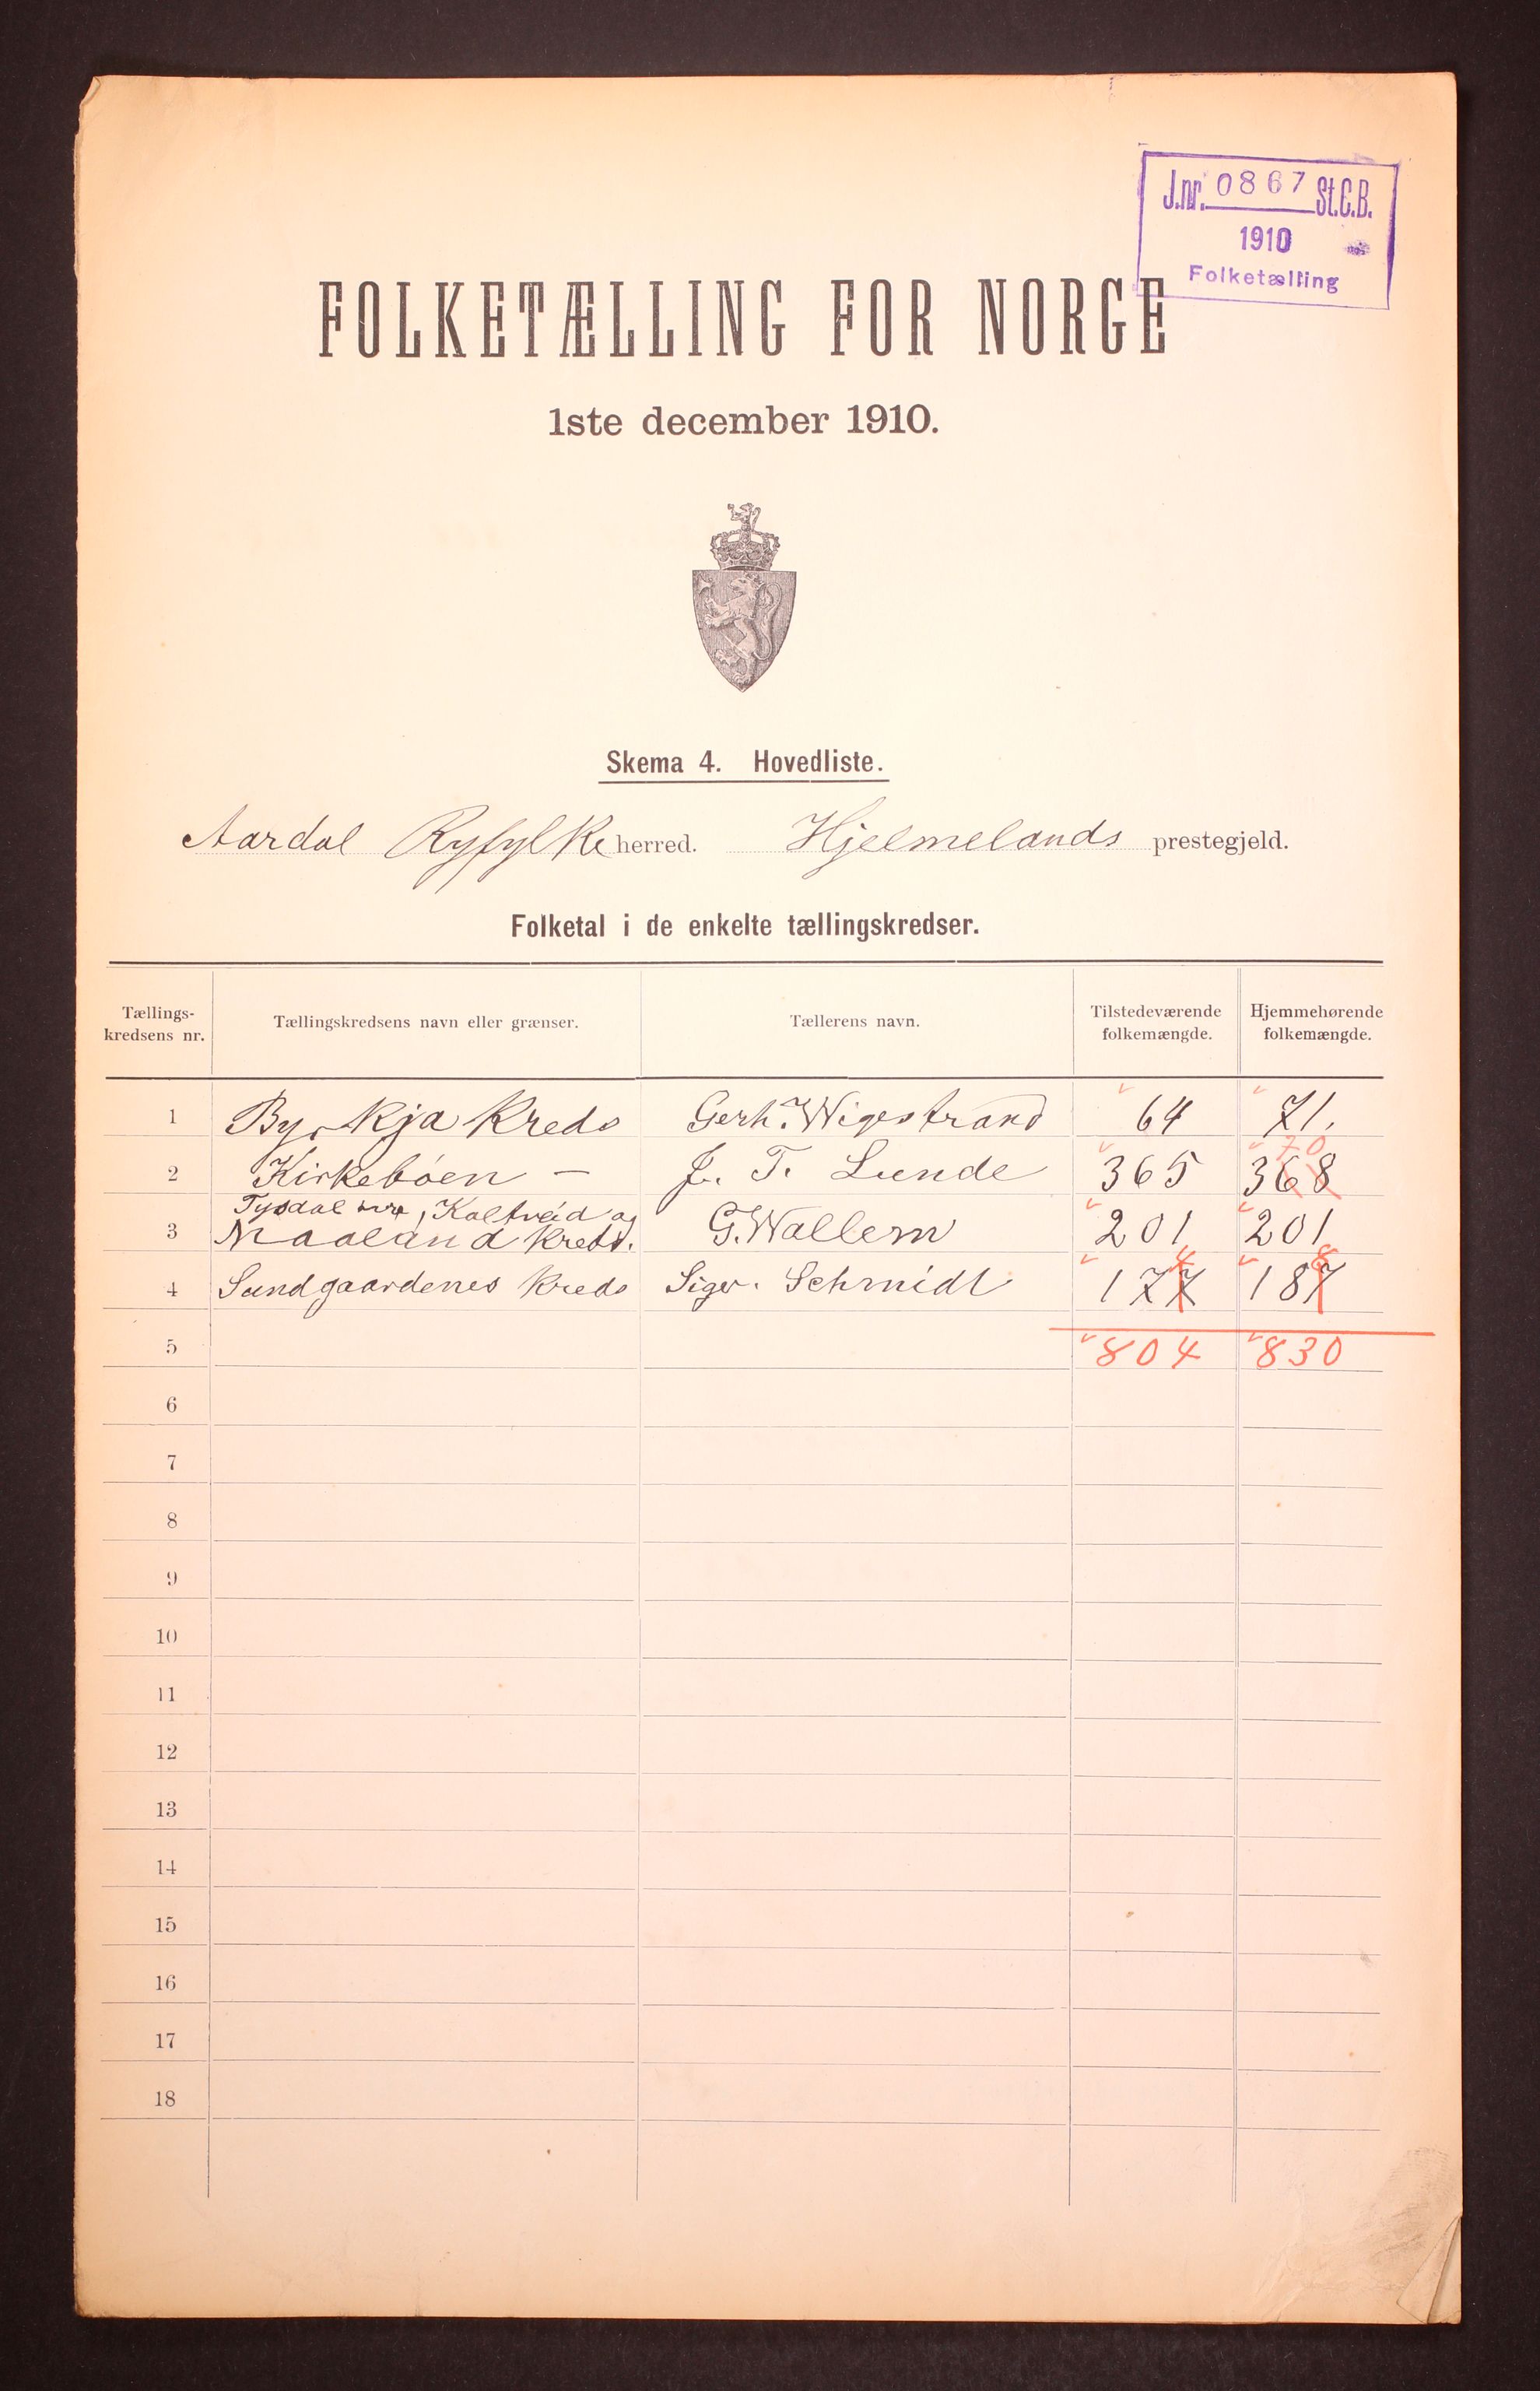 J.nr. 0867 St.C.B.
1910
Folketælling
FOLKETÆLLING FOR NORGE
1ste december 1910.
Skema 4. Hovedliste.
Aardal Ryfylke herred. Hjelmelands prestegjeld.
Folketal i de enkelte tællingskredser.
Tællings-kredsens nr. Tællingskredsens navn eller grænser. Tællerens navn. Tilstedeværende folkemængde. Hjemmehørende folkemængde.
1 Byrkja Kreds Gerh. Wigestrand 64 71.
70
2 Kirkebøen — J. T. Lunde 365 368
Tysdal, Kaltveid og
3 Maaland Kreds. G. Wallem 201 201
4 8
4 Sundgaardenes Kreds Sigv. Schmidt 177 187
5 804 830
6
7
8
9
10
11
12
13
14
15
16
17
18